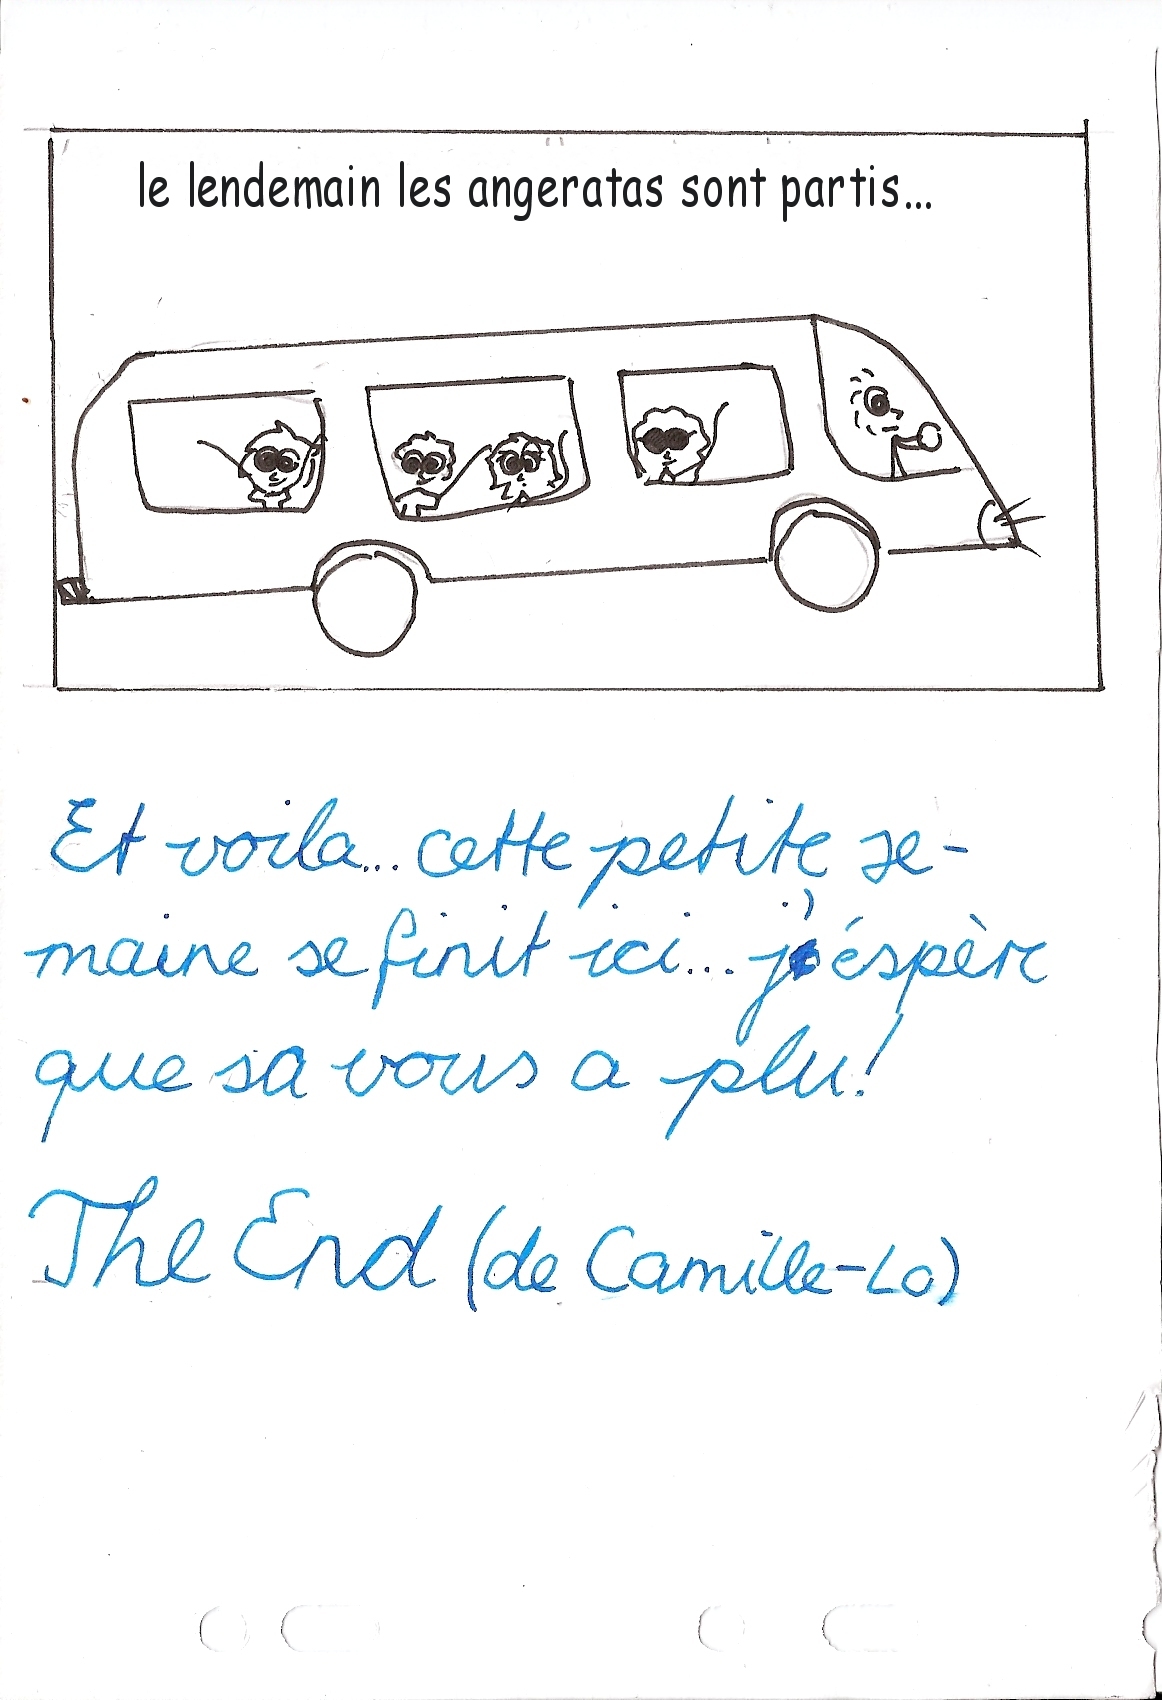 le lendemain les angeratas sont partis...
Et voila... cette petite se-
maine se finit ici... j'éspère
que sa vous a plu!
The End (de Camille-Lo)